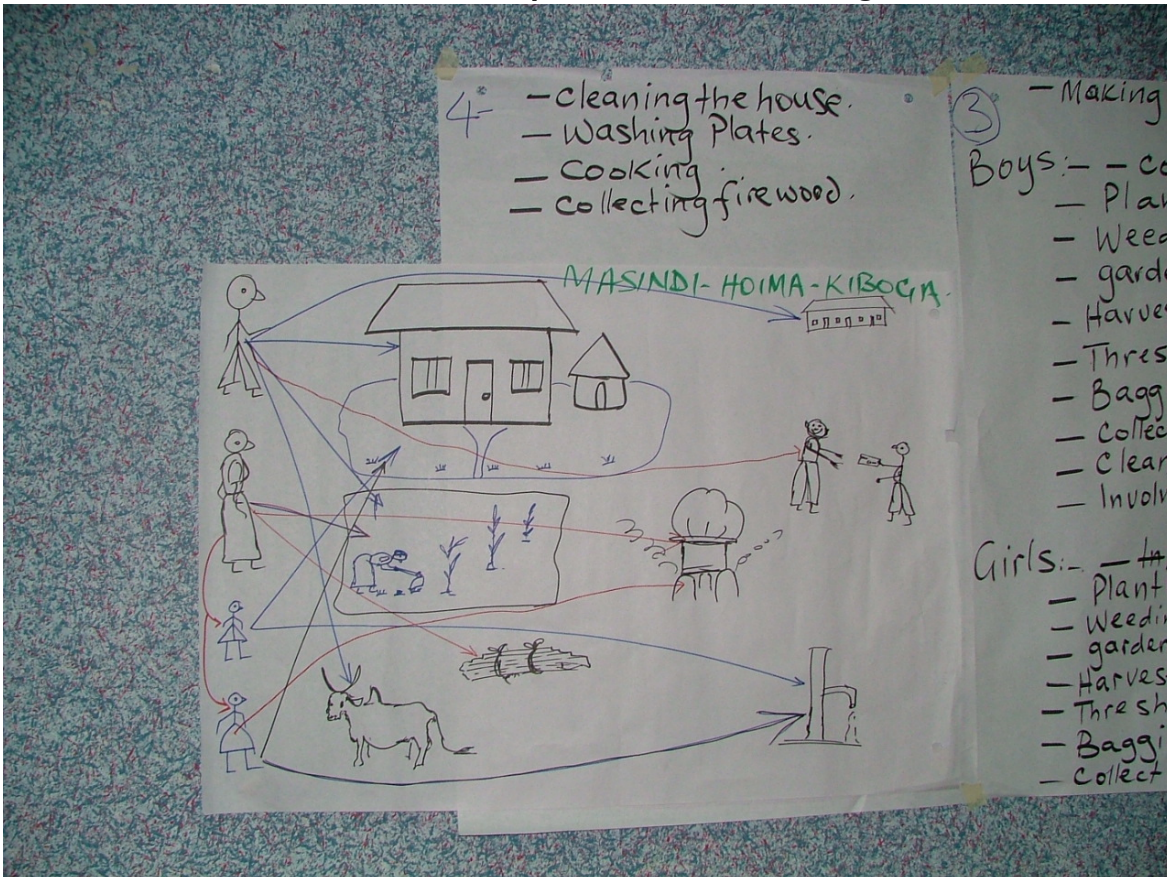 4-
- Cleaning the house.
- Washing Plates.
- Cooking.
- Collecting firewood.
MASINDI- HOIMA- KIBOGA.
3
- Making
Boys:- - Co
- Plan
- Weed
- gard
- Harves
- Thres
- Bagg
- Collec
- Clean
- Involv
Girls:-
- Plant
- Weedin
- garden
- Harves
- Thresh
- Baggi
- Collect